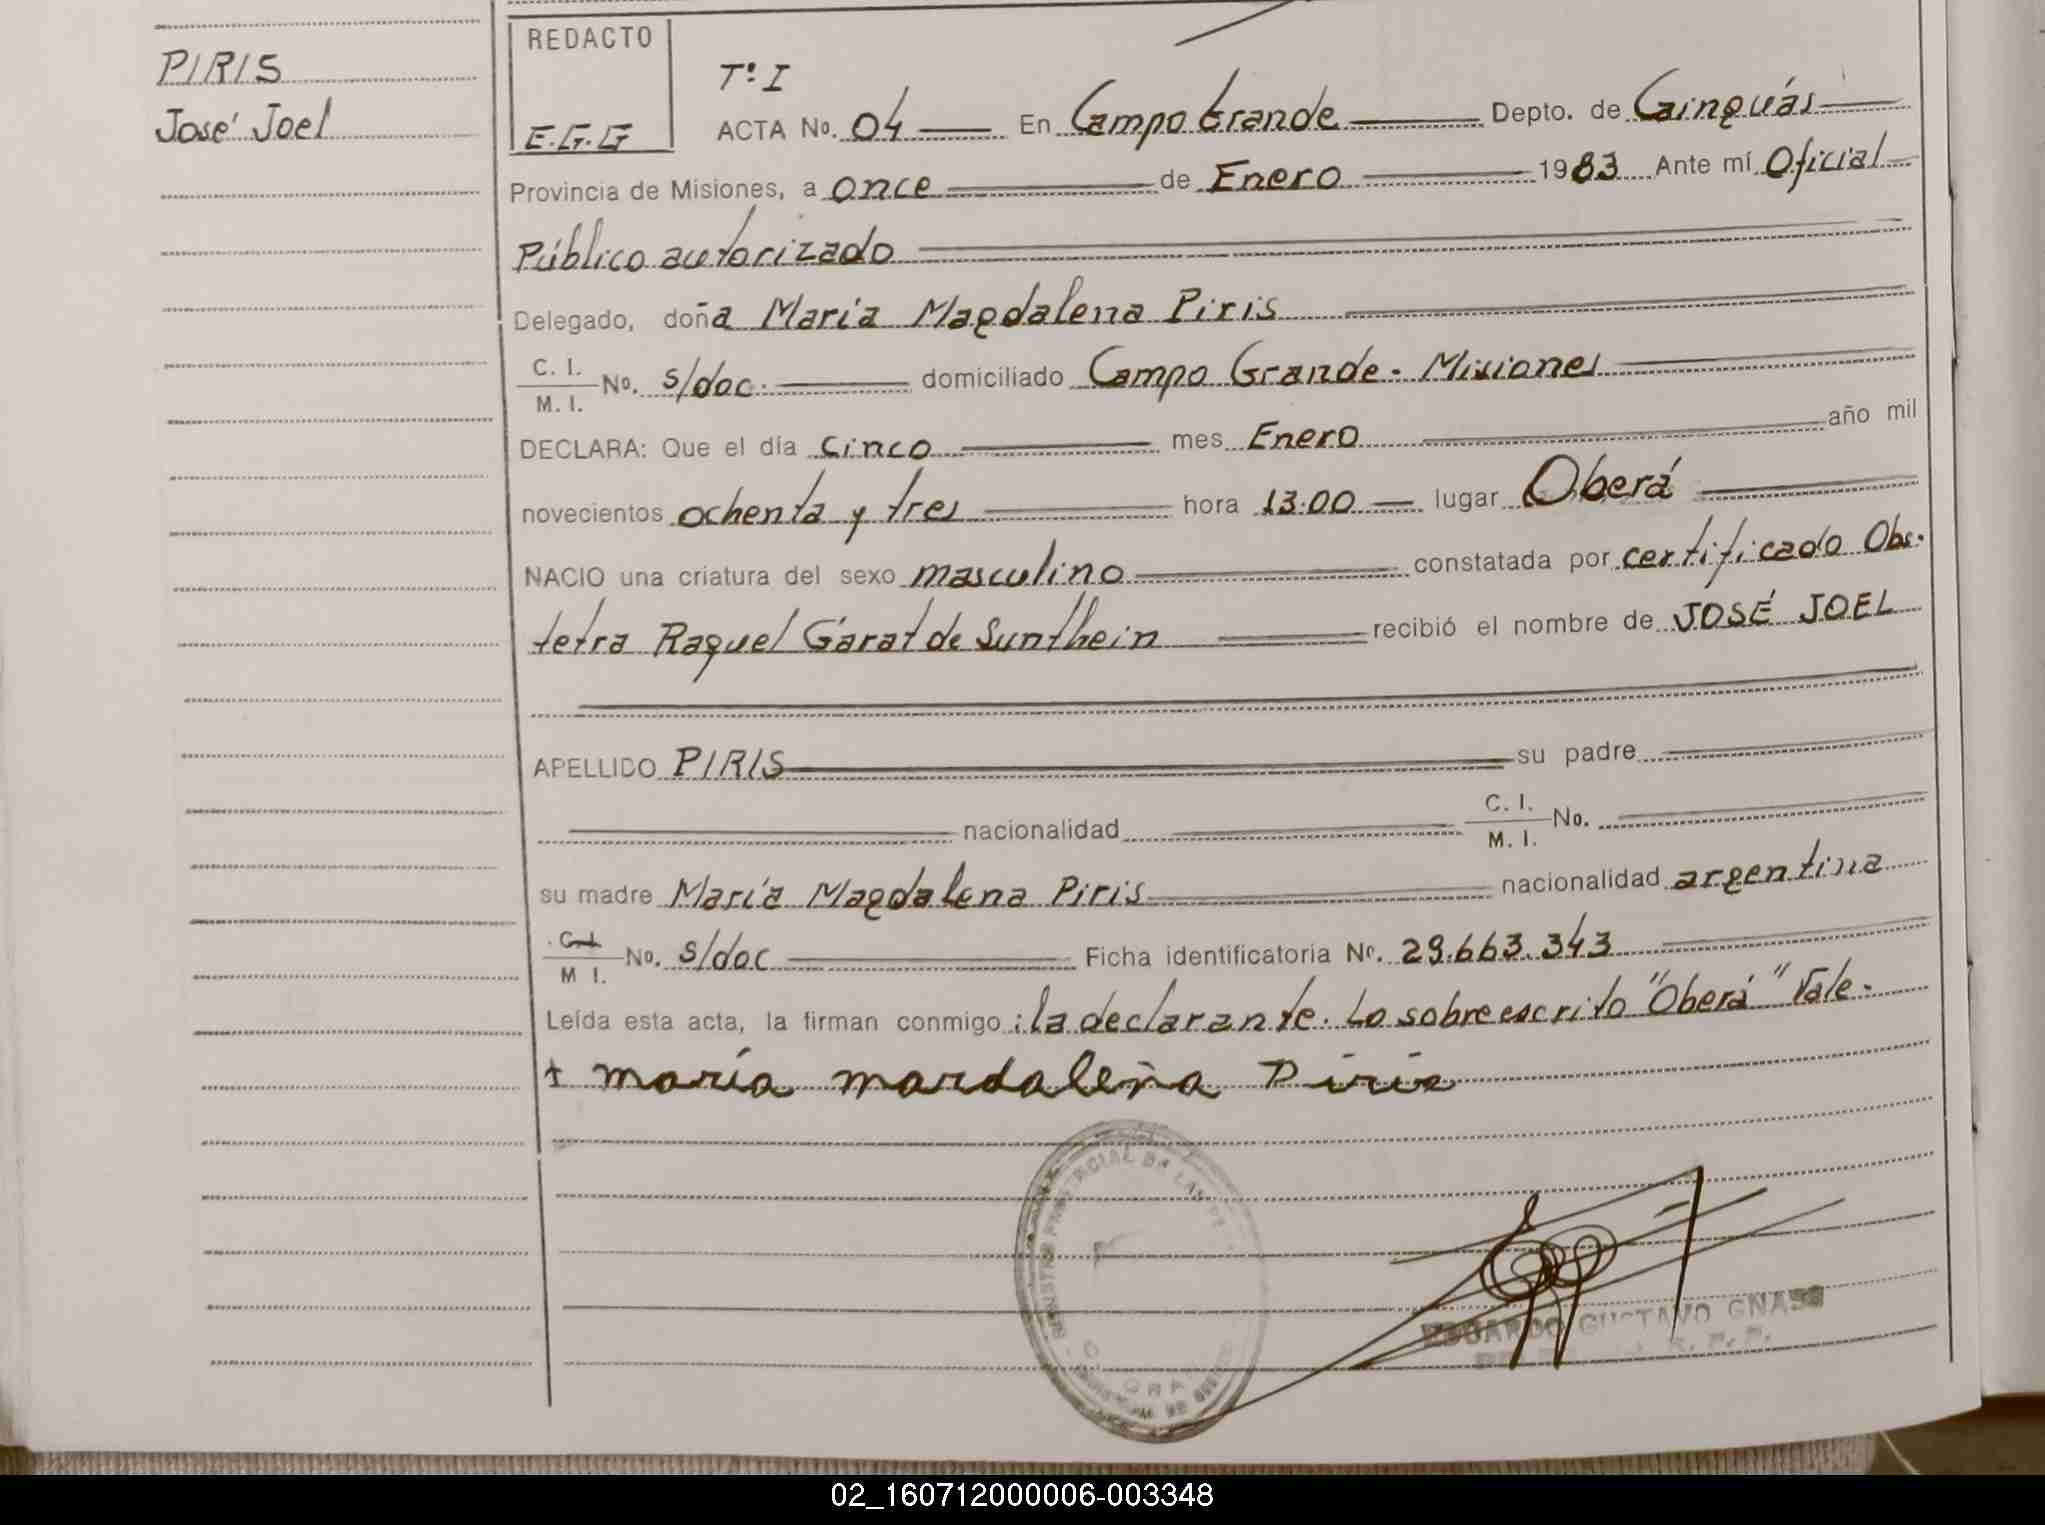 PIRIS
José Joel
REDACTO
E.G.G
Tº I
ACTA No. 04 En Campo Grande Depto. de Cainguás
Provincia de Misiones, a once de Enero 1983 Ante mí Oficial
Público autorizado
Delegado, doña María Magdalena Piris
C. I.
M. I. No. s/doc. domiciliado Campo Grande - Misiones
DECLARA: Que el día cinco mes Enero año mil
novecientos ochenta y tres hora 13:00 lugar Oberá
NACIO una criatura del sexo masculino constatada por certificado Obs-
tetra Raquel Garat de Sunthein recibió el nombre de JOSÉ JOEL
APELLIDO PIRIS su padre
nacionalidad C. I.
M. I. No.
su madre María Magdalena Piris nacionalidad argentina
C. I.
M I. No. s/doc Ficha identificatoria Nº. 29.663.343
Leída esta acta, la firman conmigo: la declarante. Lo sobreescrito "Oberá" Vale.
+ maría mardalena Piris
EDUARDO GUSTAVO GNASS
R. P. P.
02_160712000006-003348